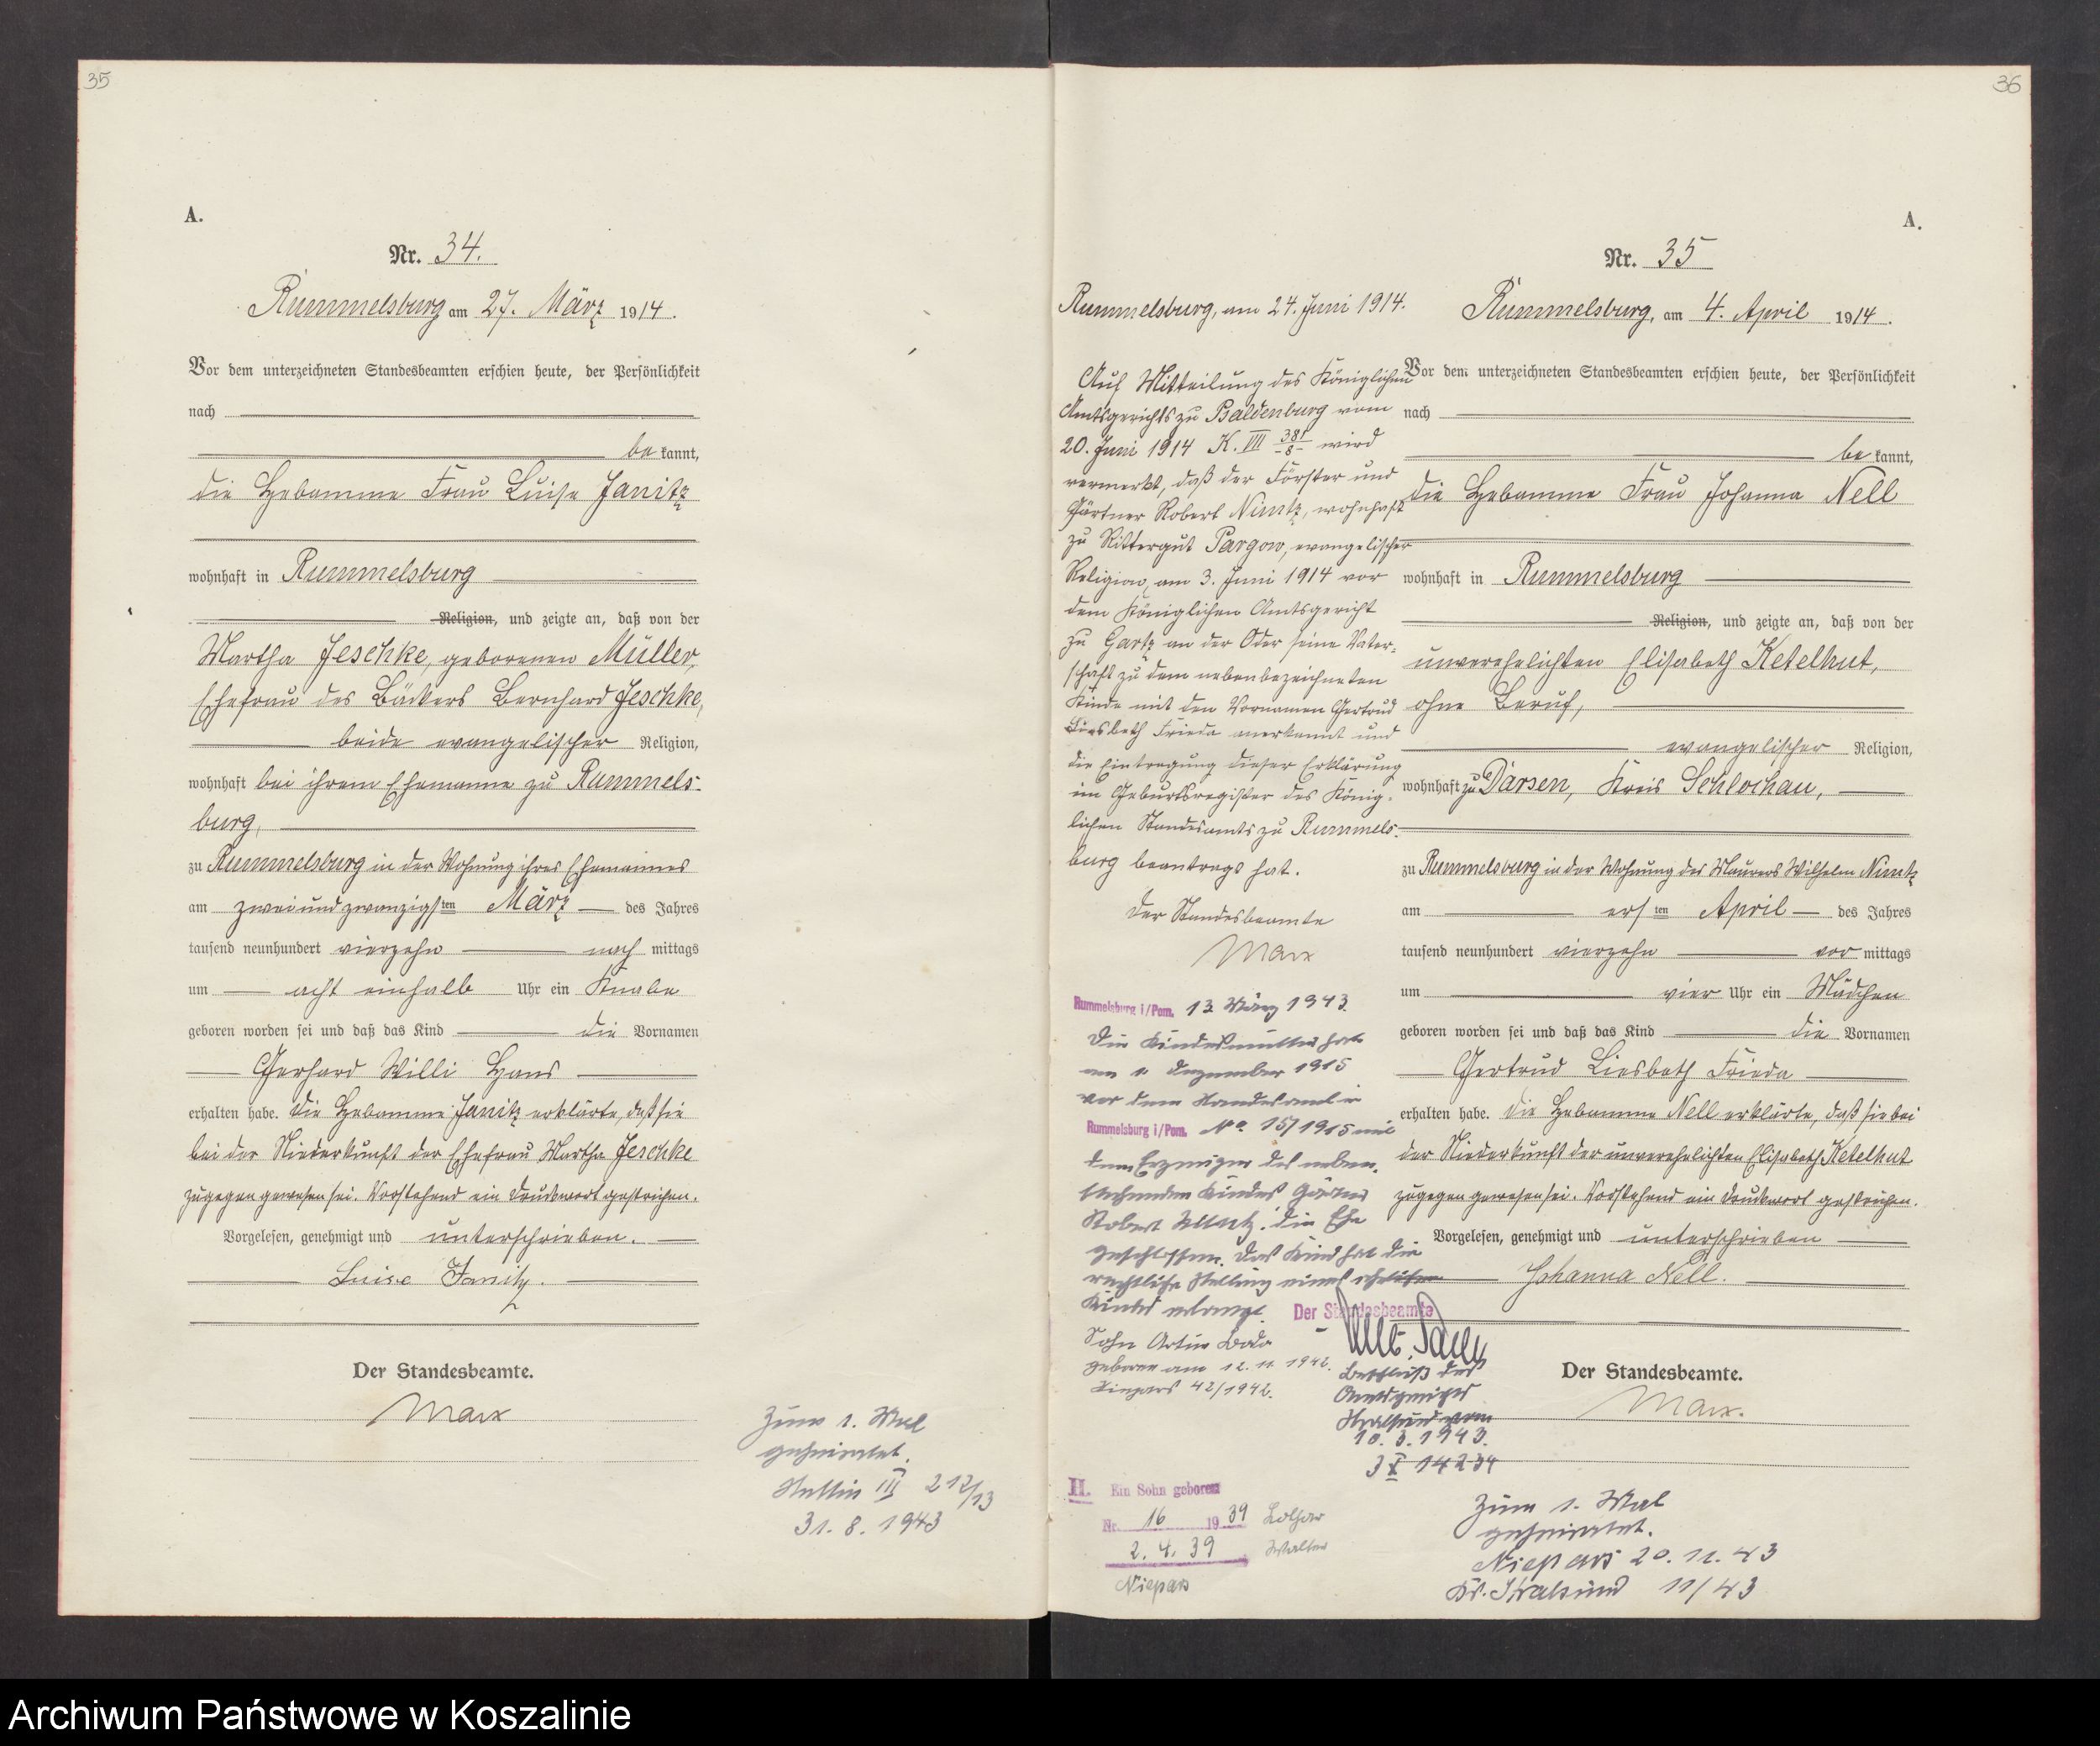 35
A.
Nr. 34.
Rummelsburg am 27. März 1914.
Vor dem unterzeichneten Standesbeamten erschien heute, der Persönlichkeit
nach
bekannt,
die Hebamme Frau Luise Janitz
wohnhaft in Rummelsburg
Religion, und zeigte an, daß von der
Martha Jeschke, geborenen Müller,
Ehefrau des Bäckers Bernhard Jeschke,
beide evangelischer Religion,
wohnhaft bei ihrem Ehemanne zu Rummels-
burg,
zu Rummelsburg in der Wohnung ihres Ehemannes
am zweiundzwanzigsten März des Jahres
tausend neunhundert vierzehn nachmittags
um acht einhalb Uhr ein Knabe
geboren worden sei und daß das Kind die Vornamen
Gerhard Willi Hans
erhalten habe. Die Hebamme Janitz erklärte, daß sie
bei der Niederkunft der Ehefrau Martha Jeschke
zugegen gewesen sei. Vorstehend ein Druckwort gestrichen.
Vorgelesen, genehmigt und unterschrieben.
Luise Janitz.
Der Standesbeamte.
Marx
Zum 1. Mal
geheiratet.
Stettin III 212/13
31. 8. 1943
36
A.
Nr. 35
Rummelsburg, am 4. April 1914.
Vor dem unterzeichneten Standesbeamten erschien heute, der Persönlichkeit
nach
bekannt,
die Hebamme Frau Johanna Nell
wohnhaft in Rummelsburg
Religion, und zeigte an, daß von der
unverehelichten Elisabeth Ketelhut,
ohne Beruf,
evangelischer Religion,
wohnhaft zu Darsen, Kreis Schlochau,
zu Rummelsburg in der Wohnung des Maurers Wilhelm Nimtz
am ersten April des Jahres
tausend neunhundert vierzehn vormittags
um vier Uhr ein Mädchen
geboren worden sei und daß das Kind die Vornamen
Gertrud Liesbeth Frieda
erhalten habe. Die Hebamme Nell erklärte, daß sie bei
der Niederkunft der unverehelichten Elisabeth Ketelhut
zugegen gewesen sei. Vorstehend ein Druckwort gestrichen.
Vorgelesen, genehmigt und unterschrieben
Johanna Nell.
Der Standesbeamte.
Marx.
Rummelsburg, am 24. Juni 1914.
Auf Mitteilung des Königlichen
Amtsgerichts zu Baldenburg vom
20. Juni 1914 K. VII 381/-8- wird
vermerkt, daß der Förster und
Gärtner Robert Nimtz, wohnhaft
zu Rittergut Pargow, evangelischer
Religion, am 3. Juni 1914 vor
dem Königlichen Amtsgericht
zu Gartz an der Oder seine Vater-
schaft zu dem nebenbezeichneten
Kinde mit den Vornamen Gertrud
Liesbeth Frieda anerkannt und
die Eintragung dieser Erklärung
im Geburtsregister des König-
lichen Standesamts zu Rummels-
burg beantragt hat.
Der Standesbeamte
Marx
Rummelsburg i/Pom. 13. März 1943.
Die Kindesmutter hat
am 1. Dezember 1915
vor dem Standesamt in
Rummelsburg i/Pom. No. 15/1915 mit
dem Erzeuger des neben-
stehenden Kindes Gärtner
Robert Nimtz die Ehe
geschlossen. Das Kind hat die
rechtliche Stellung eines ehelichen
Kindes erlangt.
Der Standesbeamte
Beschluß des
Amtsgerichts
Stralsund vom
10. 3. 1943.
3 X 14234
Sohn
geboren am 12. 11. 1942.
Niepars 42/1942.
H. Ein Sohn geboren
Nr. 16 1939 Lothar
2. 4. 39 Walter
Niepars
Zum 1. Mal
geheiratet.
Niepars 20. 11. 43
Kr. Stralsund 11/43
Archiwum Państwowe w Koszalinie